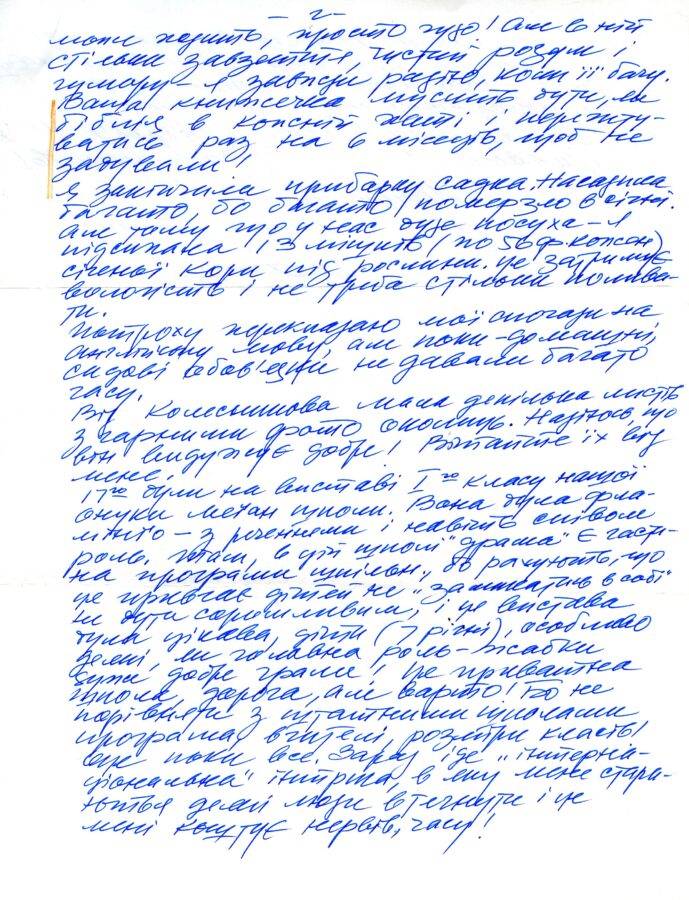 - 2 -
може ходить, просто чудо! Але в ній
стільки завзяття, чистий розум і
гумору - я завжди радію, коли її бачу.
Ваша книжечка мусить бути, як
біблія в кожній хаті і перечиту-
ватись раз на 6 місяців, щоб не
забували!
Я закінчила прибирку садка. Насадила
багато, бо багато померзло в січні.
Але тому що у нас дуже посуха - я
підсипала 13 мішків (по 50 ф. кожен)
січеної кори під рослини. Це затримує
вологість і не треба стільки полива-
ти.
Потроху переказую мої спогади на
англійську мову, але поки - домашні,
садові обов'язки не давали багато
часу.
Від Колеснікова мала декілька листів
з гарними фото околиць. Надіюсь що
він видужує добре! Вітайте їх від
мене.
17го були на виставі Iго класу нашої
онуки Меґан школи. Вона була фла-
мінґо - з реченнями і навіть співом
роль. Там, в цій школі "драма" є части-
на програми шкільн., бо рахують, що
це привчає дітей не "замикатись в собі"
не бути сором'язливим, і ця вистава
була цікава, діти (7 річні), особливо
деякі, як головна роль - жабки
дуже добре грали! Це приватна
школа, дорога, але варто! Бо не
порівняти з штатними школами
програма, вчителі, розміри класів!
Оце поки все. Зараз іде "інтерна-
ціональна" інтриґа, в яку мене стара-
ються деякі люди втягнути і це
мені коштує нервів, часу!